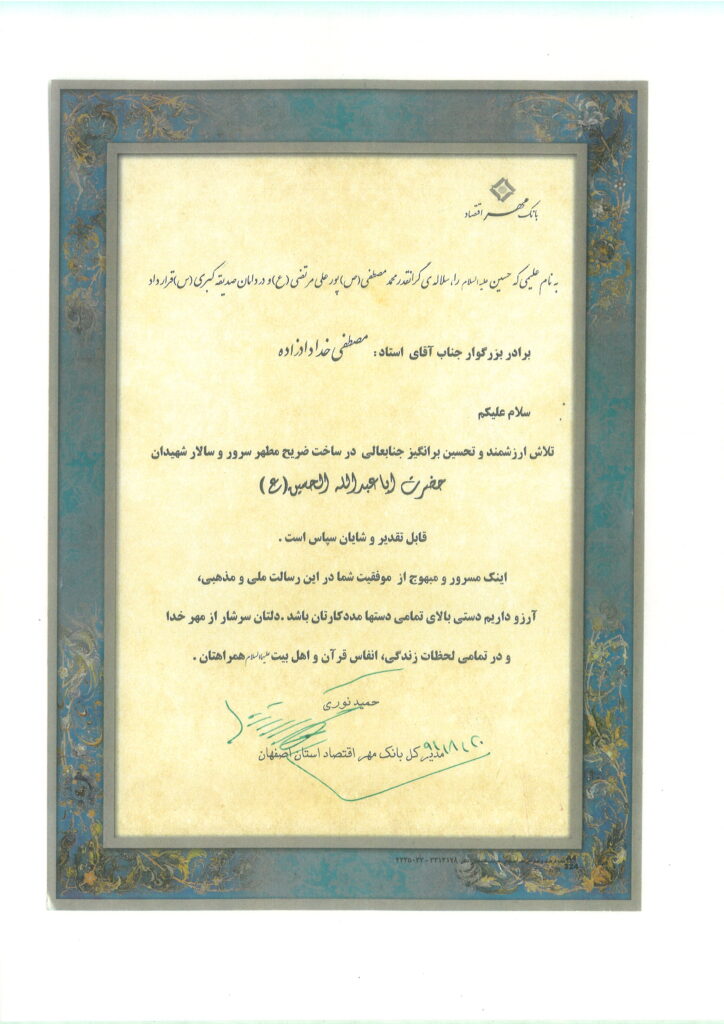 بانک مهر اقتصاد
به نام علیمی که حسین علیه السلام را، سلاله ی گرانقدر محمد مصطفی (ص) پور علی مرتضی (ع) و در دامان صدیقه کبری (س) قرار داد
برادر بزرگوار جناب آقای استاد : مصطفی خدادادزاده
سلام علیکم
تلاش ارزشمند و تحسین برانگیز جنابعالی در ساخت ضریح مطهر سرور و سالار شهیدان
حضرت اباعبدالله الحسین (ع)
قابل تقدیر و شایان سپاس است .
اینک مسرور و مبهوج از موفقیت شما در این رسالت ملی و مذهبی،
آرزو داریم دستی بالای تمامی دستها مددکارتان باشد .دلتان سرشار از مهر خدا
و در تمامی لحظات زندگی، انفاس قرآن و اهل بیت علیهم السلام همراهتان .
حمید نوری
مدیر کل بانک مهر اقتصاد استان اصفهان